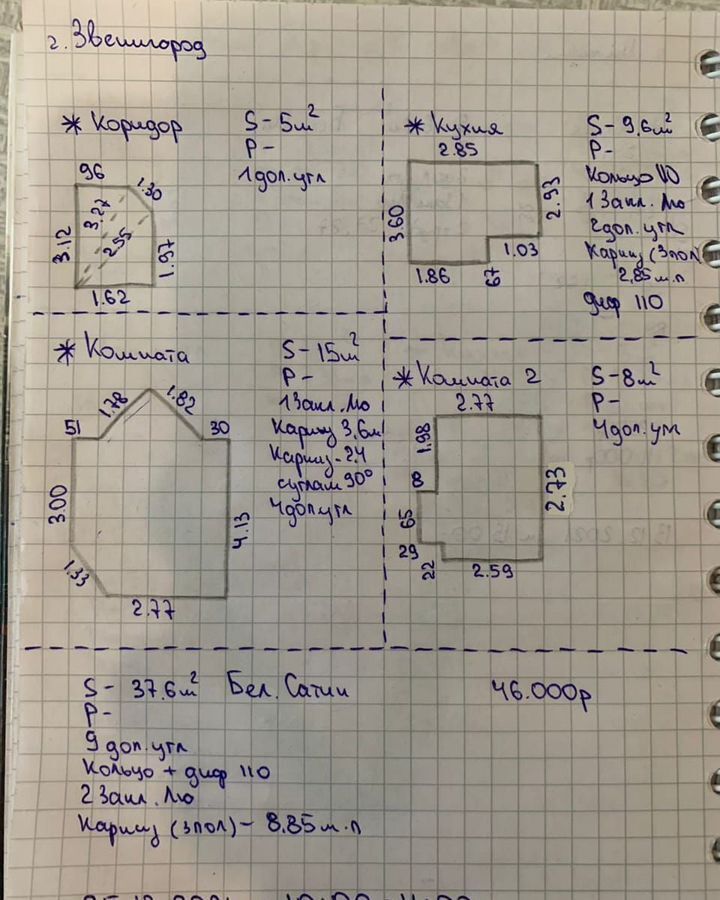 г. Звенигород
* Коридор
S - 5м²
P -
1 доп. угл
96
1.30
3.27
2.55
3.12
1.97
1.62
* Кухня
S - 9,6м²
P -
Кольцо 110
1 Закл. Лю
2 доп. угл
Карниз (3пол)
2,85 м.п
диф 110
2.85
3.60
2.93
1.03
1.86
67
* Комната
S - 15м²
P -
1 Закл. Лю
Карниз 3,6м
Карниз - 2.4
с углам 90°
4 доп угл
1.78
1.82
51
30
3.00
4.13
1.33
2.77
* Комната 2
S - 8м²
P -
4 доп. угл
2.77
1.98
8
65
2.73
29
22
2.59
S - 37.6м² Бел. Сатин 46.000р
P -
9 доп. угл
Кольцо + диф 110
2 Закл. Лю
Карниз (3пол) - 8.85 м.п